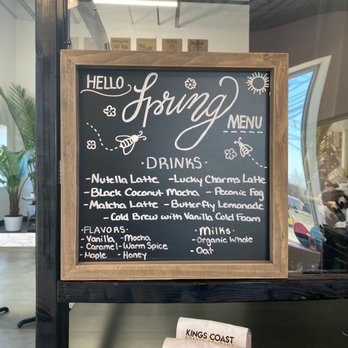 HELLO
Spring
MENU
DRINKS
-Nutella Latte -Lucky Charms Latte
-Black Coconut Mocha -Peconic Fog
-Matcha Latte -Butterfly Lemonade
-Cold Brew with Vanilla Cold Foam
FLAVORS:
-Vanilla -Mocha
-Caramel -Warm Spice
-Maple -Honey
Milks
-Organic Whole
-Oat
KINGS COAST